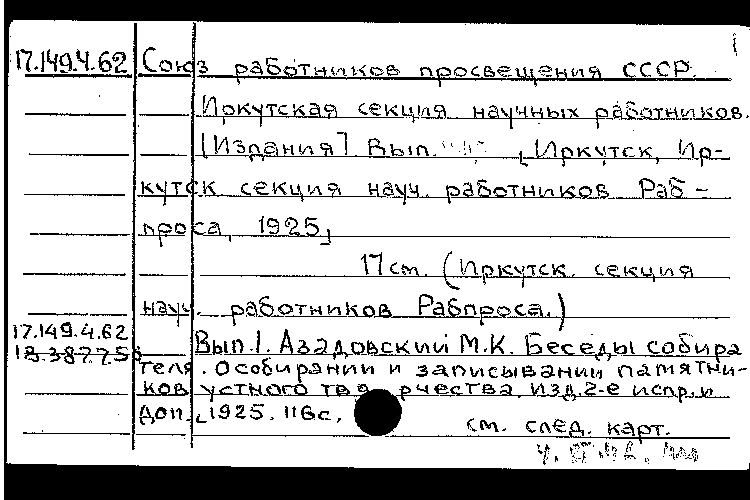 17.149.4.62 Союз работников просвещения СССР.
Иркутская секция научных работников.
[Издания] Вып. [Иркутск, Ир-
кутск секция науч. работников Раб-
проса, 1925]
17 см. (Иркутск. секция
науч. работников Рабпроса.)
17.149.4.62 Вып. 1. Азадовский М.К. Беседы собира
18.387.75
теля. О собирании и записывании памятни-
ков устного творчества. Изд. 2-е испр. и
доп. [1925. 116 с.
см. след. карт.